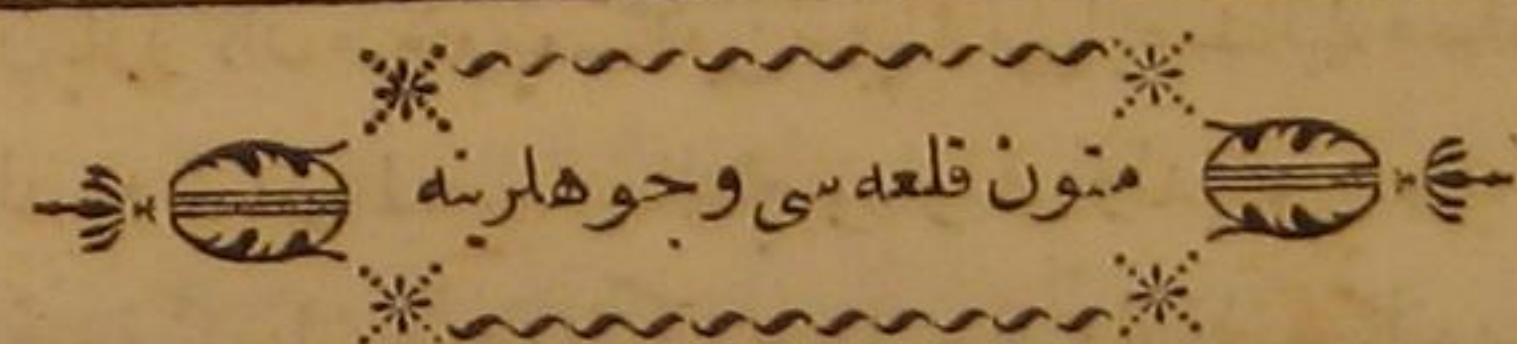 متون قلعه سی و جوهلرینه